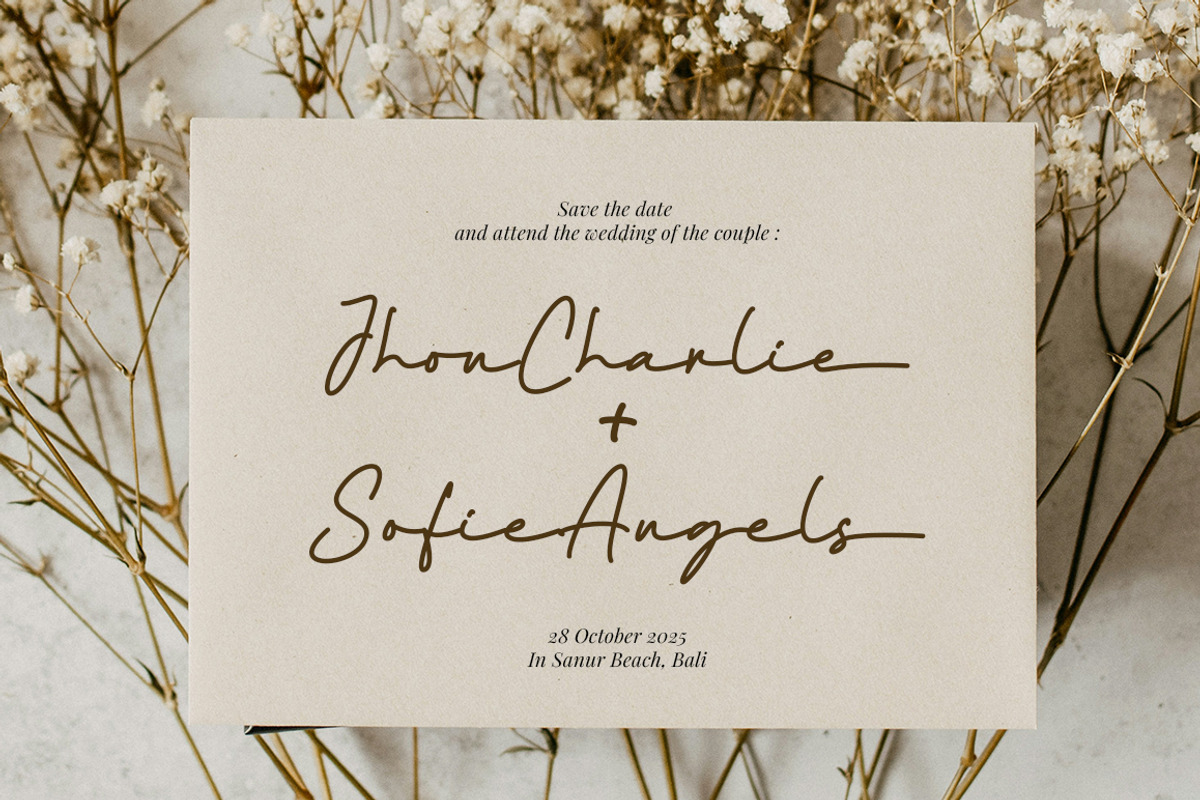 Save the date
and attend the wedding of the couple :
JhonCharlie
+
SofieAngels
28 October 2025
In Sanur Beach, Bali